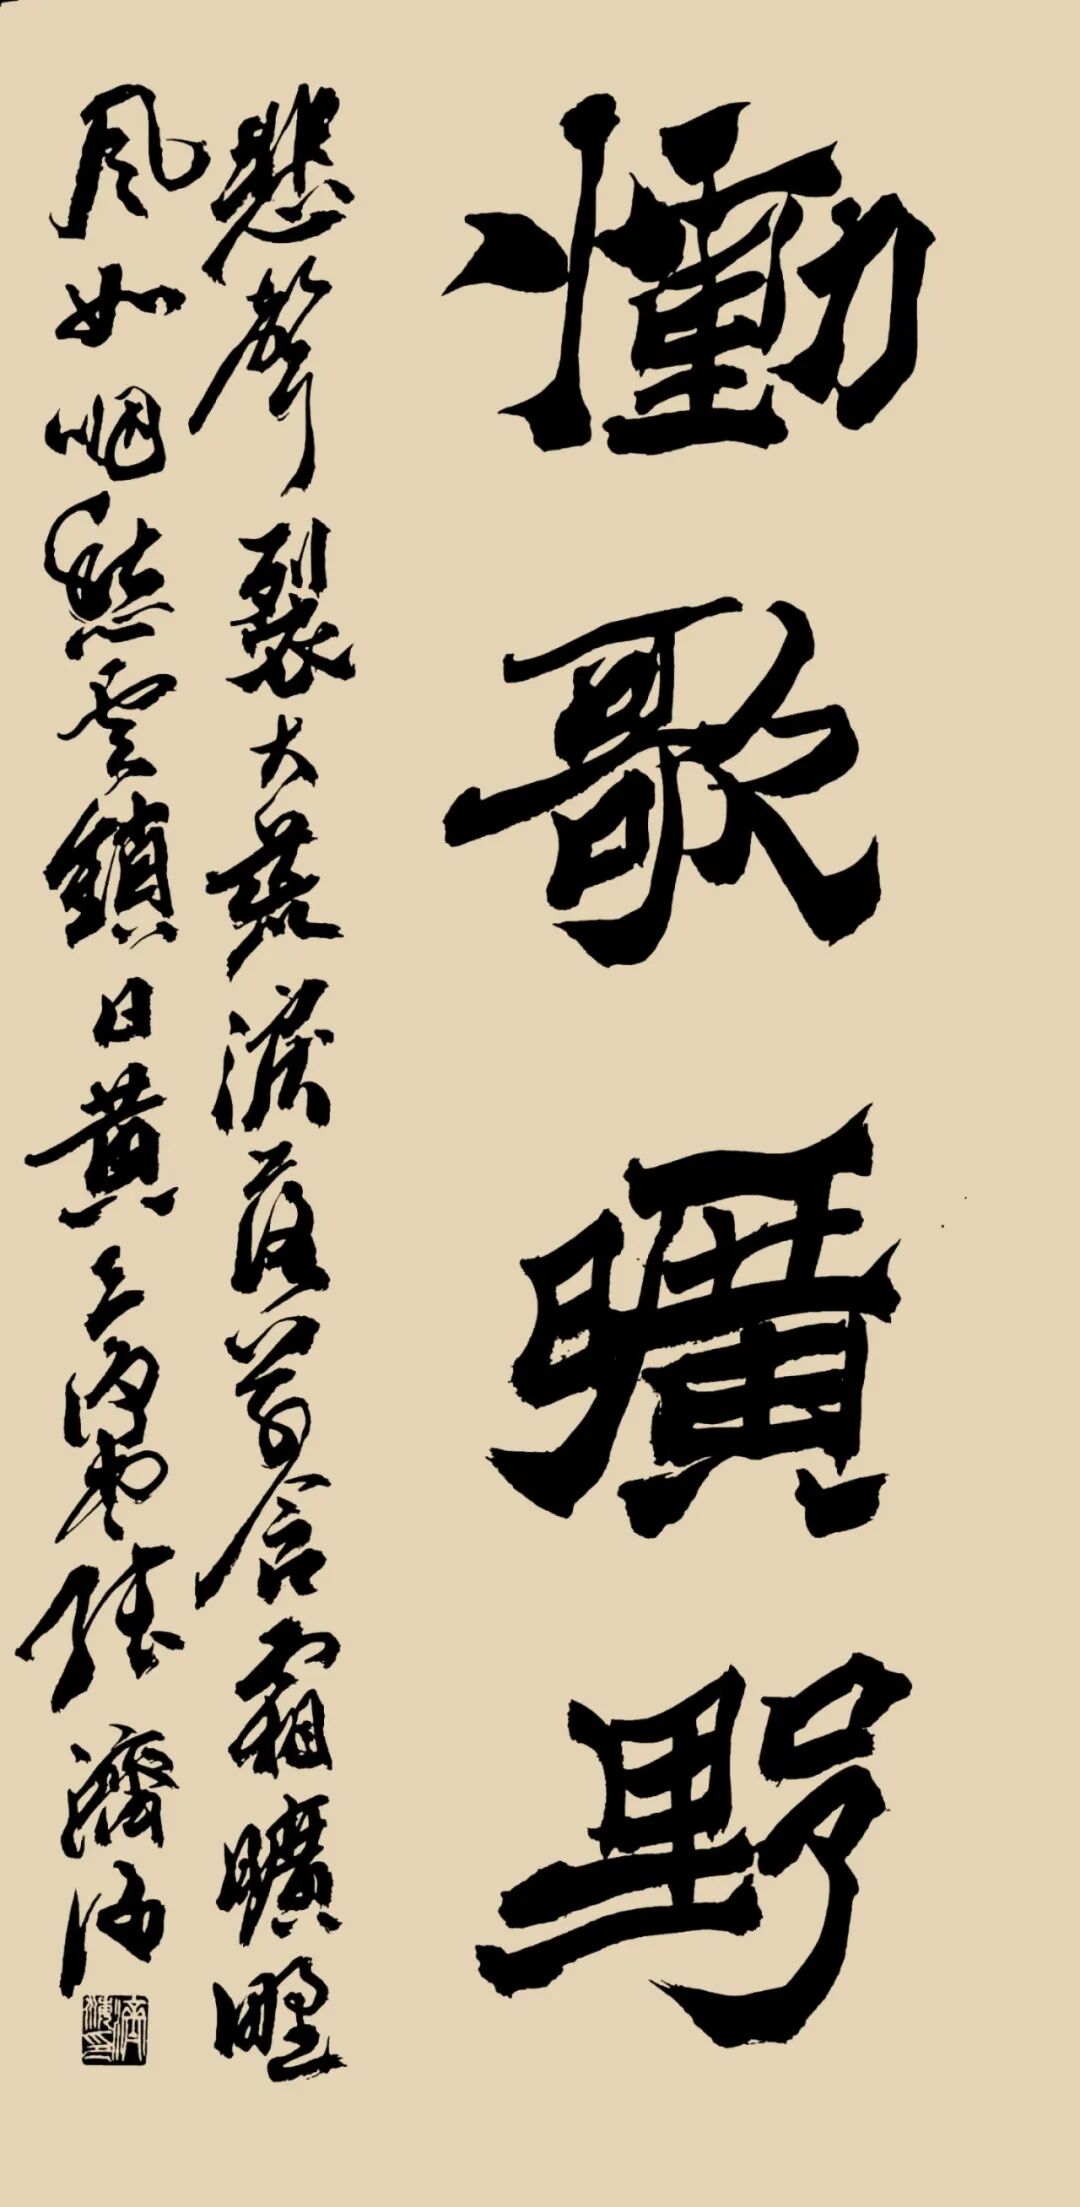 慟歌曠野
悲聲裂大荒淚落草含霜曠野
風如咽愁雲鎖日黃 濟海